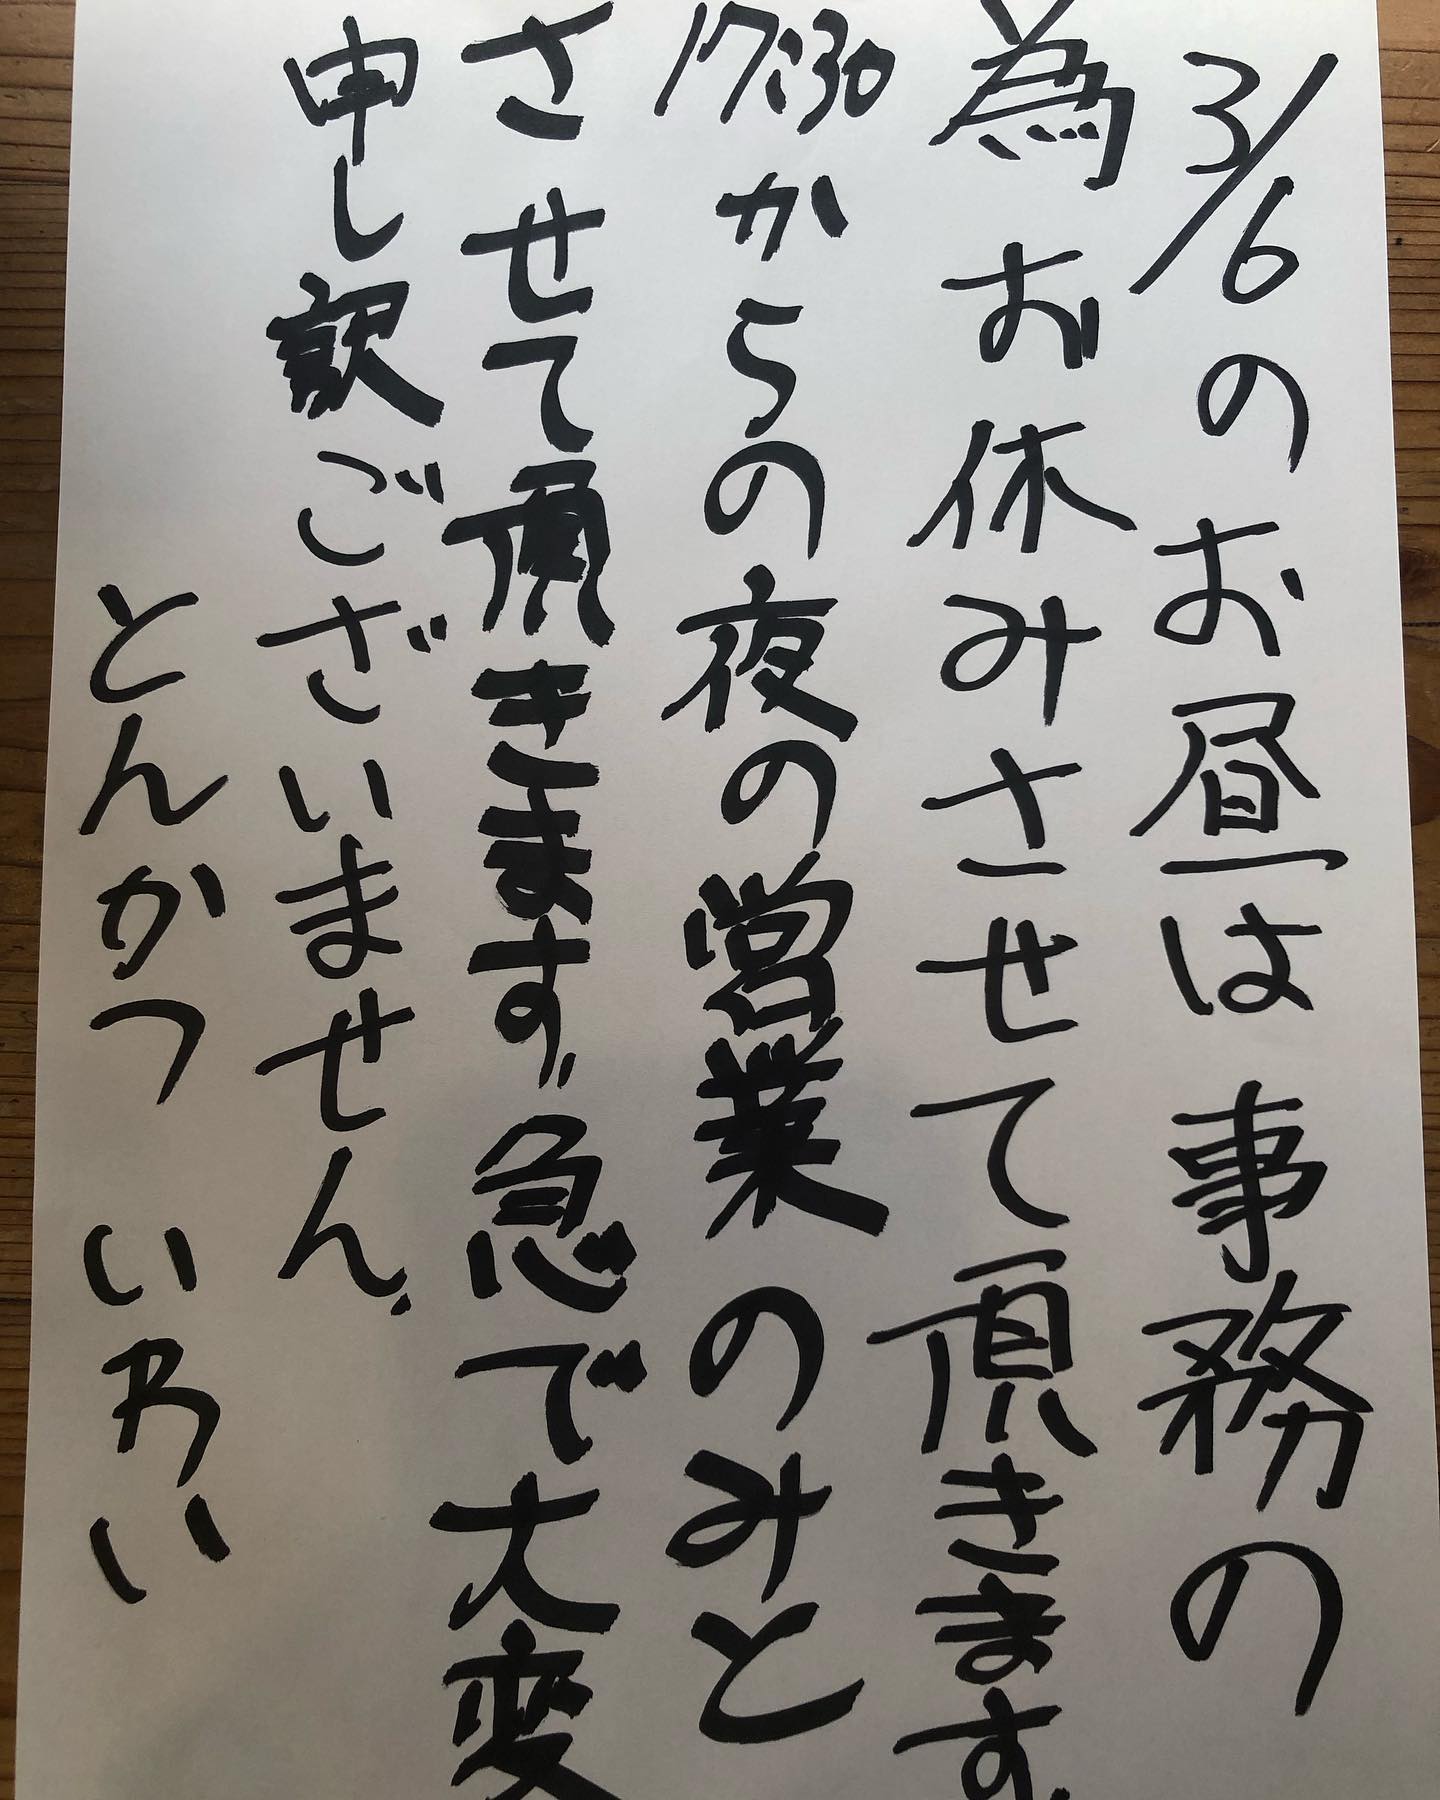 3/6のお昼は事務の
為お休みさせて頂きます。
17:30からの夜の営業のみと
させて頂きます。急で大変
申し訳ございません。
とんかつ いわい